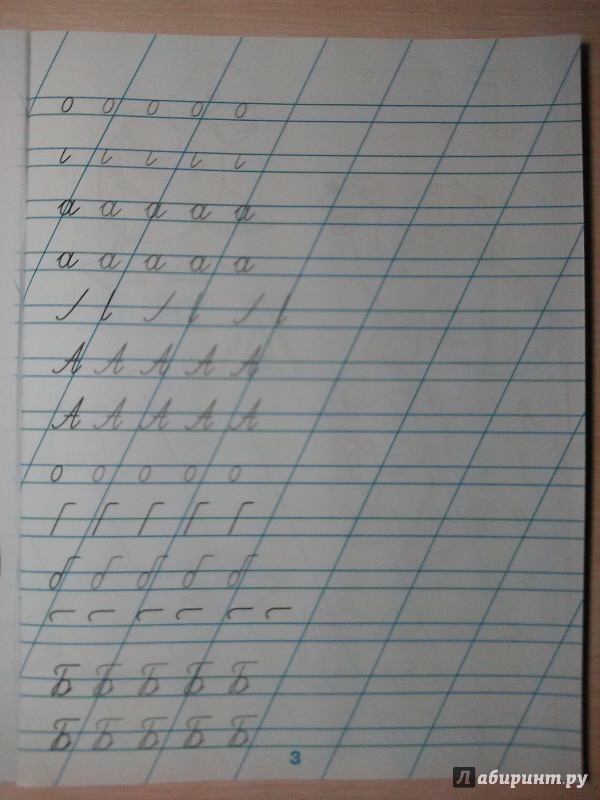 о о о о о
а а а а а
а а а а а
А А А А А
А А А А А
о о о о о
б б б б б
Б Б Б Б Б
Б Б Б Б Б
3
Лабиринт.ру